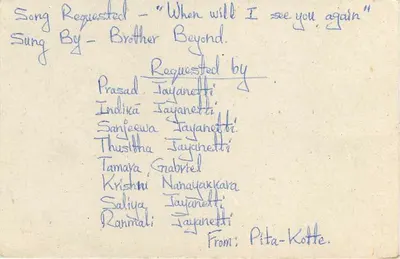 Song Requested - "When will I see you again"
Sung By - Brother Beyond.
Requested by
Prasad Jayanetti
Indika Jayanetti
Sanjeewa Jayanetti
Thusitha Jayanetti
Tamara Gabriel
Krishni Nanayakkara
Saliya Jayanetti
Ranmali Jayanetti
From: Pita-Kotte.